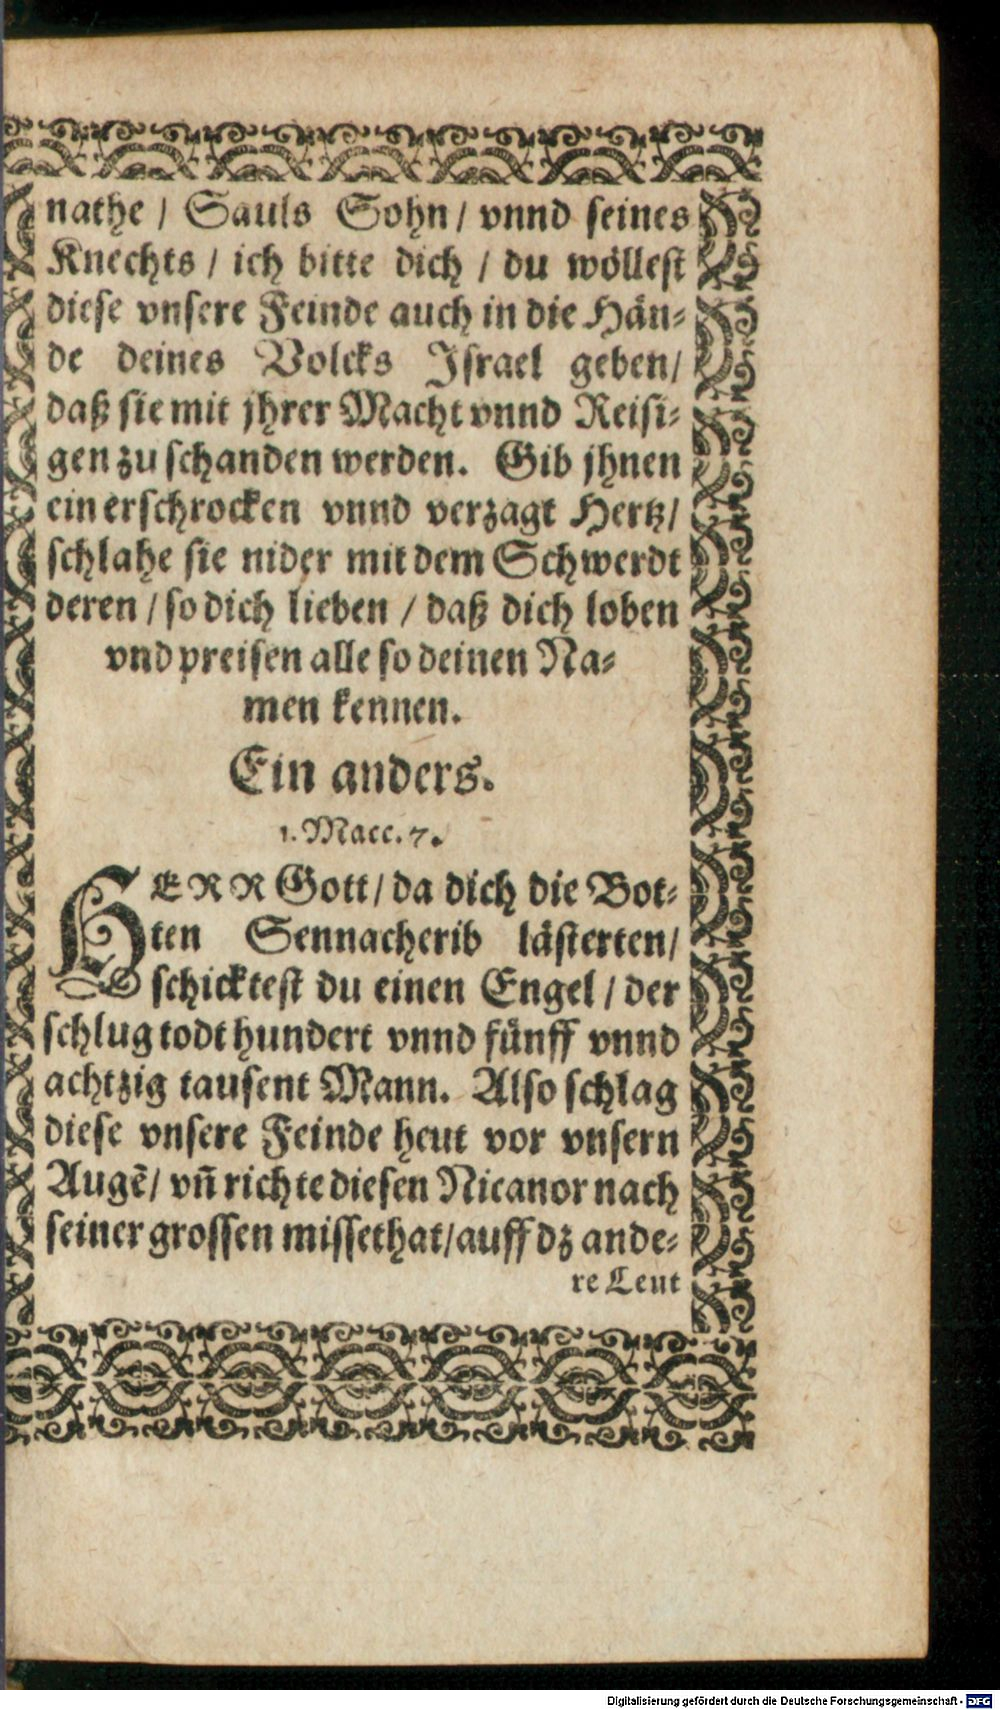 nathe / Sauls Sohn / vnnd seines
Knechts / ich bitte dich / du wöllest
diese vnsere Feinde auch in die Hän-
de deines Volcks Israel geben /
daß sie mit jhrer Macht vnnd Reisi-
gen zu schanden werden. Gib jhnen
ein erschrocken vnnd verzagt Hertz /
schlahe sie nider mit dem Schwerdt
deren / so dich lieben / daß dich loben
vnd preisen alle so deinen Na-
men kennen.
Ein anders.
1. Macc. 7.
HERR Gott / da dich die Bot-
ten Sennacherib lästerten /
schicktest du einen Engel / der
schlug todt hundert vnnd fünff vnnd
achtzig tausent Mann. Also schlag
diese vnsere Feinde heut vor vnsern
Augẽ / vñ richte diesen Nicanor nach
seiner grossen missethat / auff dz ande-
re Leut
Digitalisierung gefördert durch die Deutsche Forschungsgemeinschaft - DFG